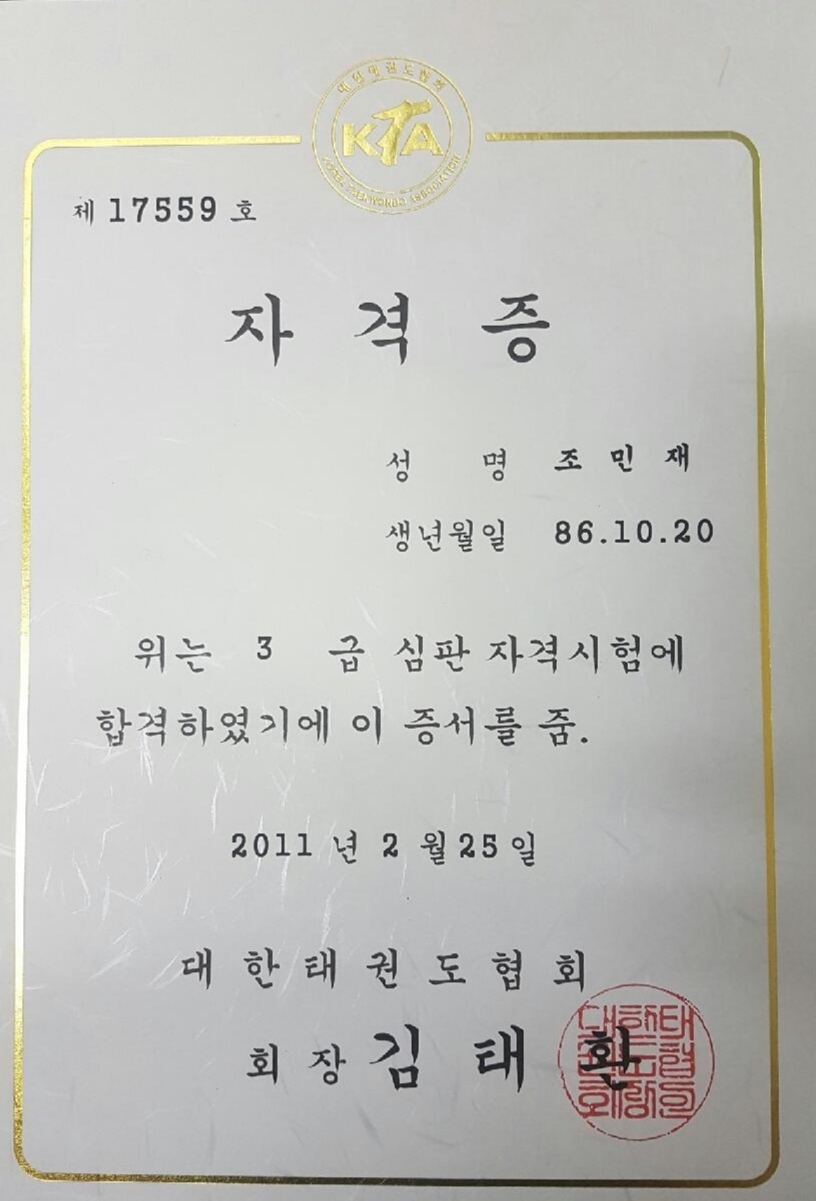 대한태권도협회
KTA
KOREA TAEKWONDO ASSOCIATION
제 17559 호
자 격 증
성 명 조 민 재
생년월일 86.10.20
위는 3 급 심판 자격시험에
합격하였기에 이 증서를 줌.
2011 년 2 월 25 일
대 한 태 권 도 협 회
회 장 김 태 환